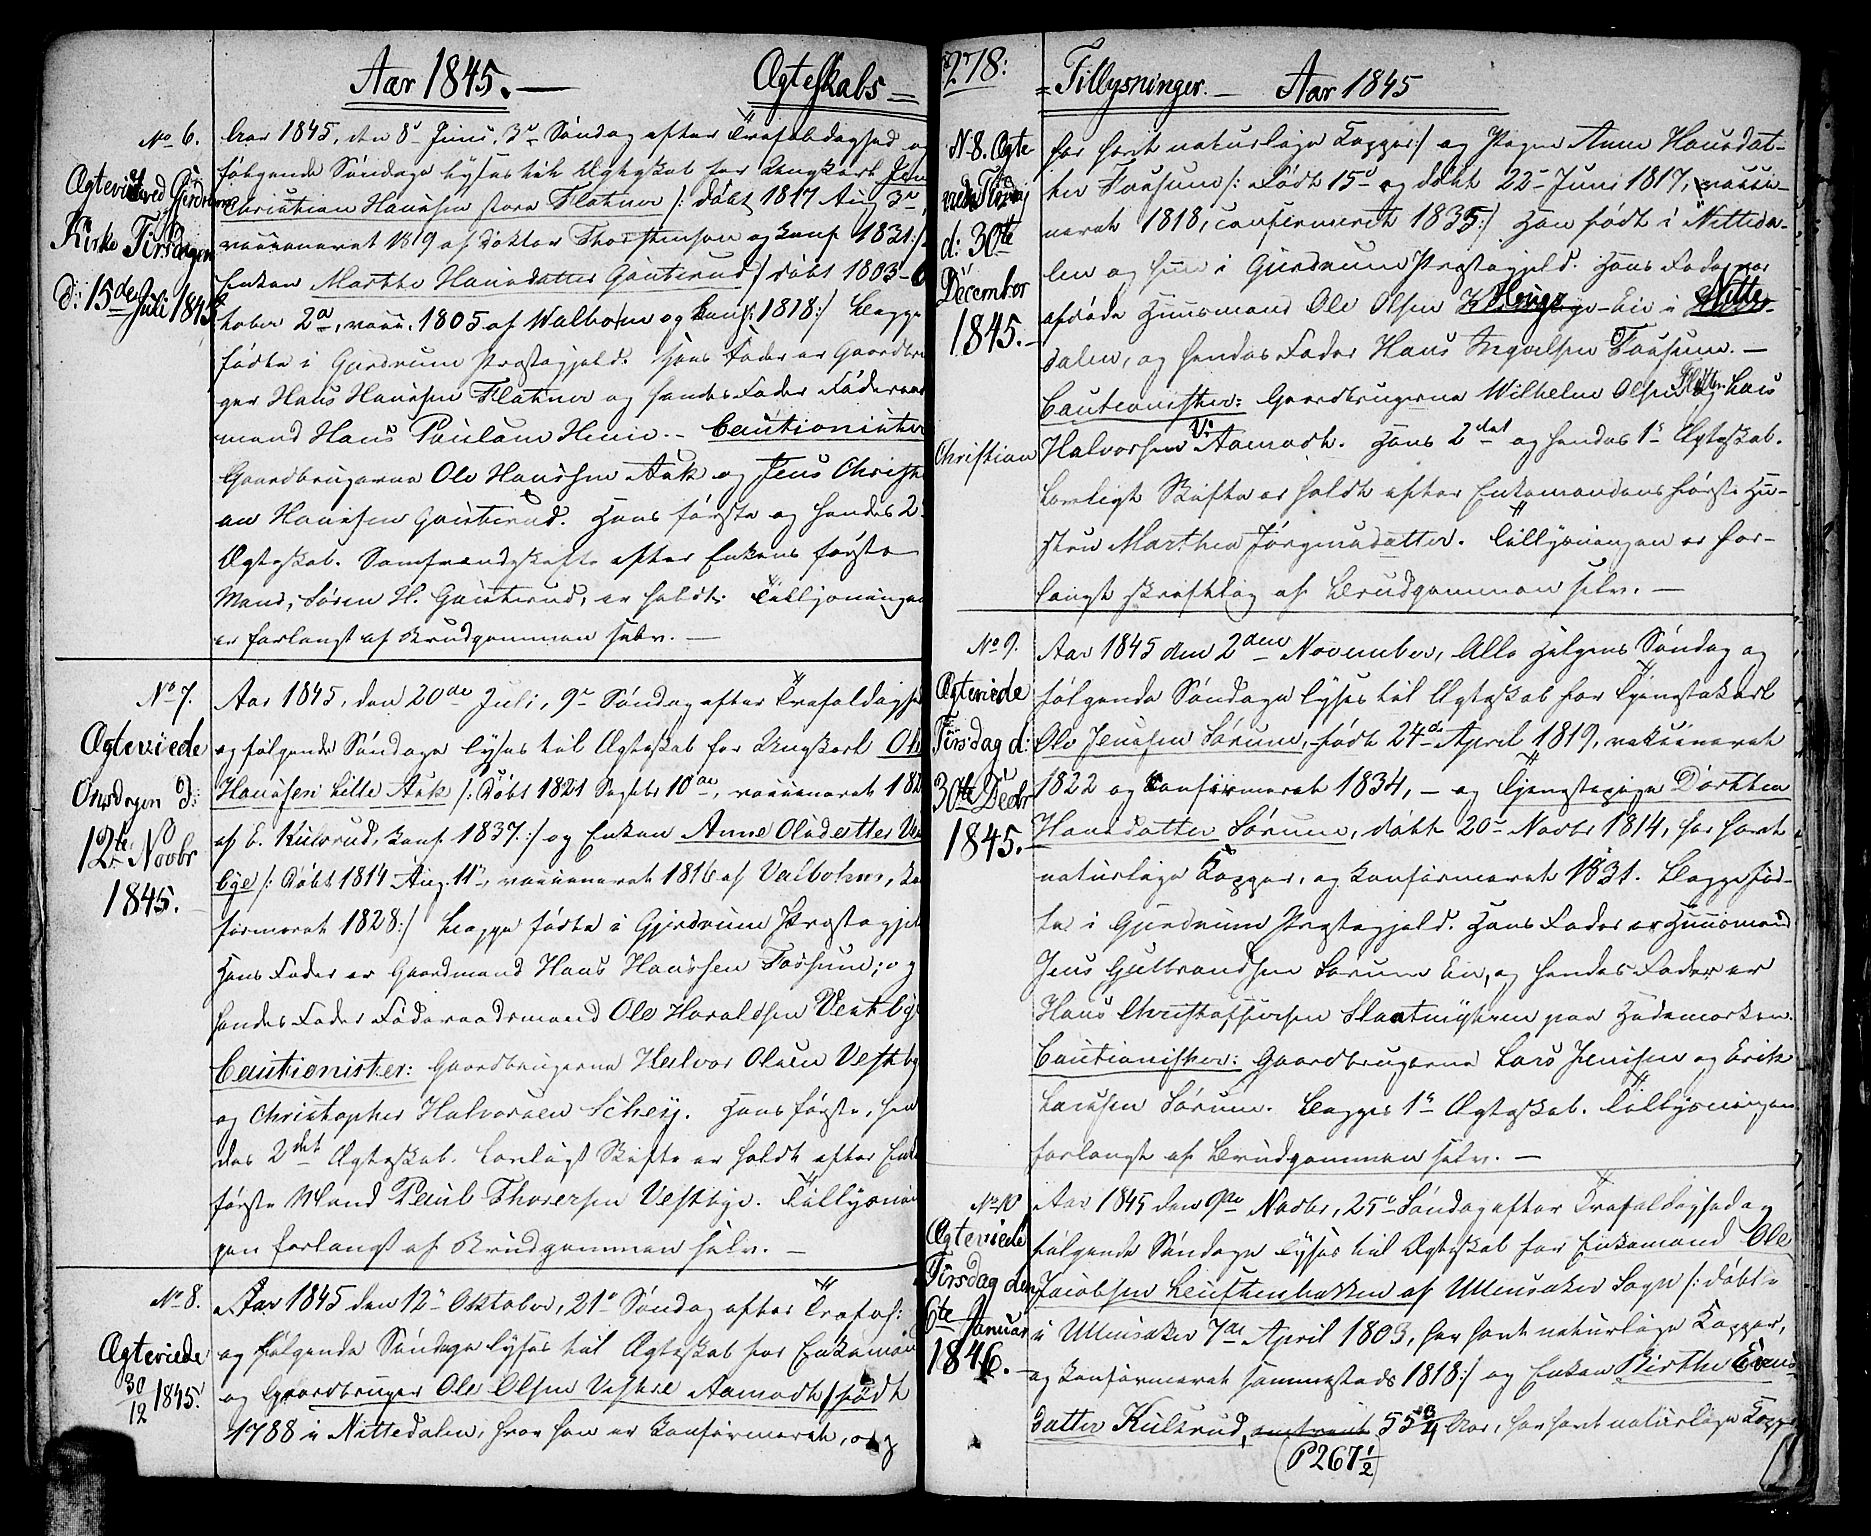 Aar 1845. — Ægteskabs =
No 6.
Ægteviet ved Gjerdrums
Kirke Tirsdagen
d: 15de Juli 1845
Aar 1845, den 8de Juni, 3die Søndag efter Trefoldighed og
følgende Søndage lyses til Ægteskab for Ungkarl Jens
Christian Hanssen store Flatner /: døbt 1817 Aug 3die,
vaccineret 1819 af Doktor Thorstensen og konf. 1831 :/
Enken Marthe Hansdatter Gauterud / døbt 1803
tober 2den, vacc. 1805 af Walbohm og konf. 1818 :/ begge
fødte i Gjerdrum Præstegjeld. Hans Fader er Gaardbru
ger Hans Hanssen Flatner og hendes Fader Føderaads
mand Hans Paulsen Henie. — Cautionister
Gaardbrugerne Ole Hanssen Ask og Jens Christi
an Hanssen Gauterud. Hans første og hendes 2.
Ægteskab. Samfrændeskifte efter Enkens første
Mand, Søren H. Gauterud, er holdt. Tillysningen
er forlangt af Brudgommen selv. —
No 7.
Ægteviede
Onsdagen d:
12te Novbr
1845.
Aar 1845, den 20de Juli, 9de Søndag efter Trefoldighed
og følgende Søndage lyses til Ægteskab for Ungkarl Ole
Hanssen lille Ask /: døbt 1821 Septbr 10de, vaccineret 182
af E. Kulsrud, konf. 1837 :/ og Enken Anne Olsdatter Vest
bye /: døbt 1814 Aug. 11te, vaccineret 1816 af Valbohm, kon
firmeret 1828 :/ begge fødte i Gjerdrum Præstegjeld
Hans Fader er Gaardmand Hans Hanssen Fossum; og
hendes Fader Føderaadsmand Ole Haraldsen Vestbye
Cautionister: Gaardbrugerne Halvor Olsen Vestby
og Christopher Halvorsen Schey. Hans første, hen
des 2det Ægteskab. Lovligt Skifte er holdt efter Enkens
første Mand Paul Thoresen Vestbye. Tillysnin
gen forlangt af Brudgommen selv. —
No 8.
Ægteviede
30/12 1845.
Aar 1845 den 12te Oktober, 21de Søndag efter Trefol:
og følgende Søndage lyses til Ægteskab for Enkemand
og Gaardbruger Ole Olsen Vestre Aamodt / født
1788 i Nittedalen, hvor han er konfirmeret, og
278:
= Tillysninger. — Aar 1845
N. 8. Ægte
viede Tirsdag
d: 30te
December
1845. —
Christian
har havt naturlige Kopper :/ og Pigen Anne Hansdat-
ter Fossum /: født 15de og døbt 22de Juni 1817, vacci-
neret 1818, confirmeret 1835 :/ Han født i Nitteda-
len og hun i Gjerdrum Præstegjeld. Hans Fader var
afdøde Huusmand Ole Olsen Houge-Eie i Nitte-
dalen, og hendes Fader Hans Ingvalsen Fossum. —
Cautionister: Gaardbrugerne Wilhelm Olsen og Lars
Halvorsen V: Aamodt. Hans 2det og hendes 1ste Ægteskab.
Lovligt Skifte er holdt efter Enkemandens første Hu-
stru Marthea Jørgensdatter. Tillysningen er for-
langt skriftlig af Brudgommen selv. —
No 9.
Ægteviede
Tirsdag d:
30te Decbr
1845. —
Aar 1845 den 2den November, Alle Helgens Søndag og
følgende Søndage lyses til Ægteskab for Tjenestekarl
Ole Jenssen Sørum, født 24de April 1819, vaccineret
1822 og konfirmeret 1834, — og Tjenestepige Dorthea
Hansdatter Sørum, døbt 20de Novbr 1814, har havt
naturlige Kopper, og konfirmeret 1831. Begge fød-
te i Gjerdrum Præstegjeld. Hans Fader er Huusmand
Jens Gulbrandsen Sørum Eie, og hendes Fader er
Hans Christoffersen paa Hedemarken.
Cautionister: Gaardbrugerne Lars Jenssen og Erik
Larssen Sørum. Begges 1ste Ægteskab. Tillysningen
forlangt af Brudgommen selv. —
No 10
Ægteviede
Tirsdag den
6te Januar
1846. —
Aar 1845 den 9de Novbr, 25de Søndag efter Trefoldighed og
følgende Søndage lyses til Ægteskab for Enkemand Ole
Jacobsen af Ullensaker Sogn /: døbt
i Ullensaker 7de April 1803, har havt naturlige Kopper,
og konfirmeret sammesteds 1818 :/ og Enken Birthe Evens-
datter Kulsrud, omtrent 55 3/4 Aar, har havt naturlige Kopper
(P 267 1/2)